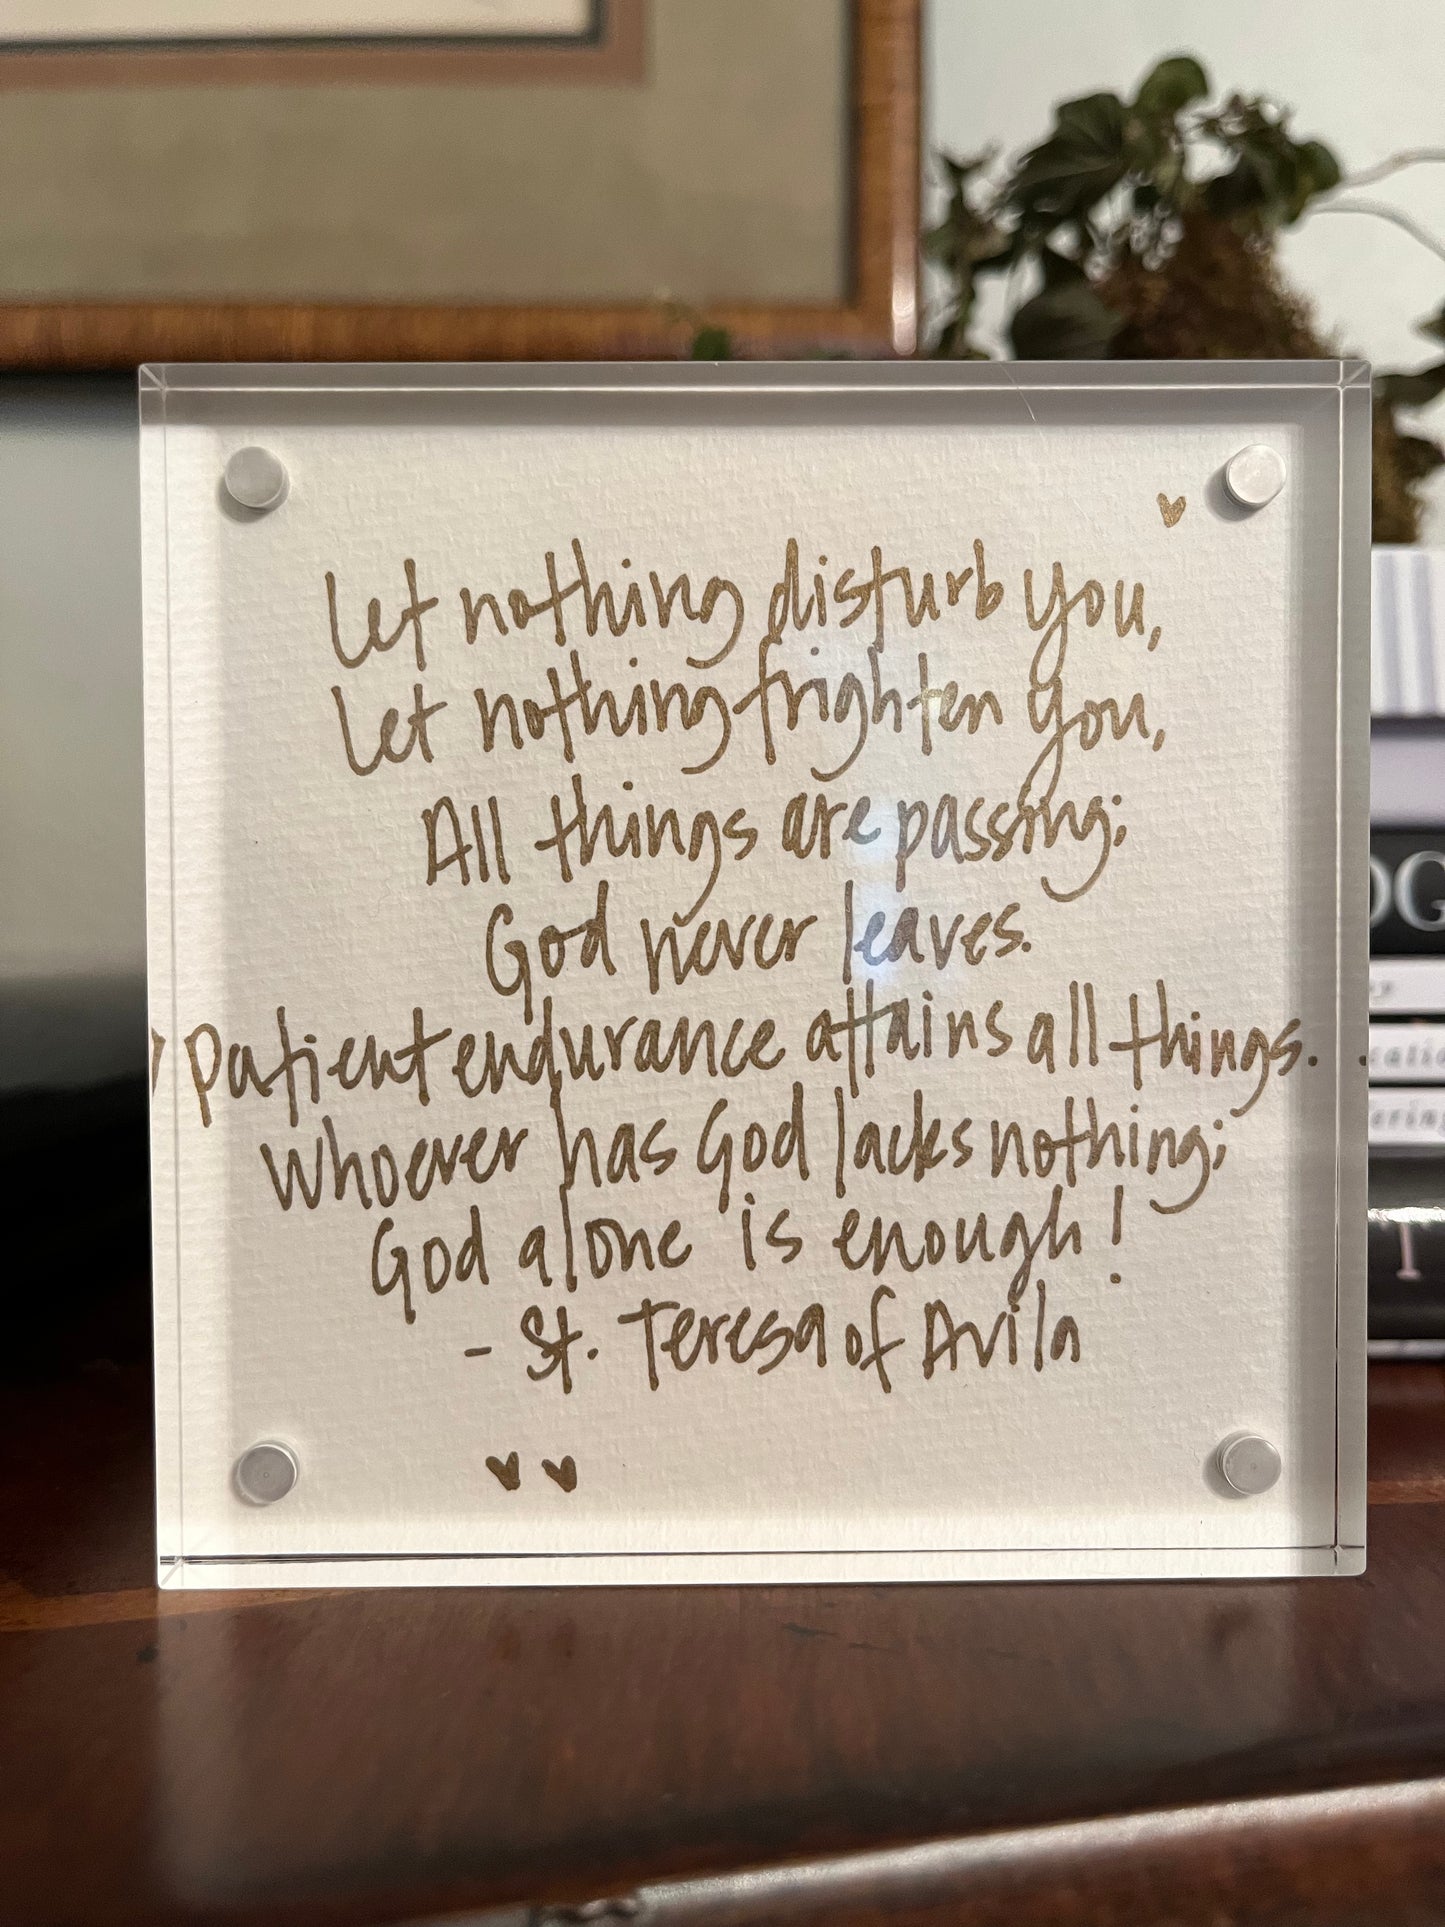 Let nothing disturb you,
Let nothing frighten you,
All things are passing;
God never leaves.
Patient endurance attains all things.
Whoever has God lacks nothing;
God alone is enough!
- St. Teresa of Avila